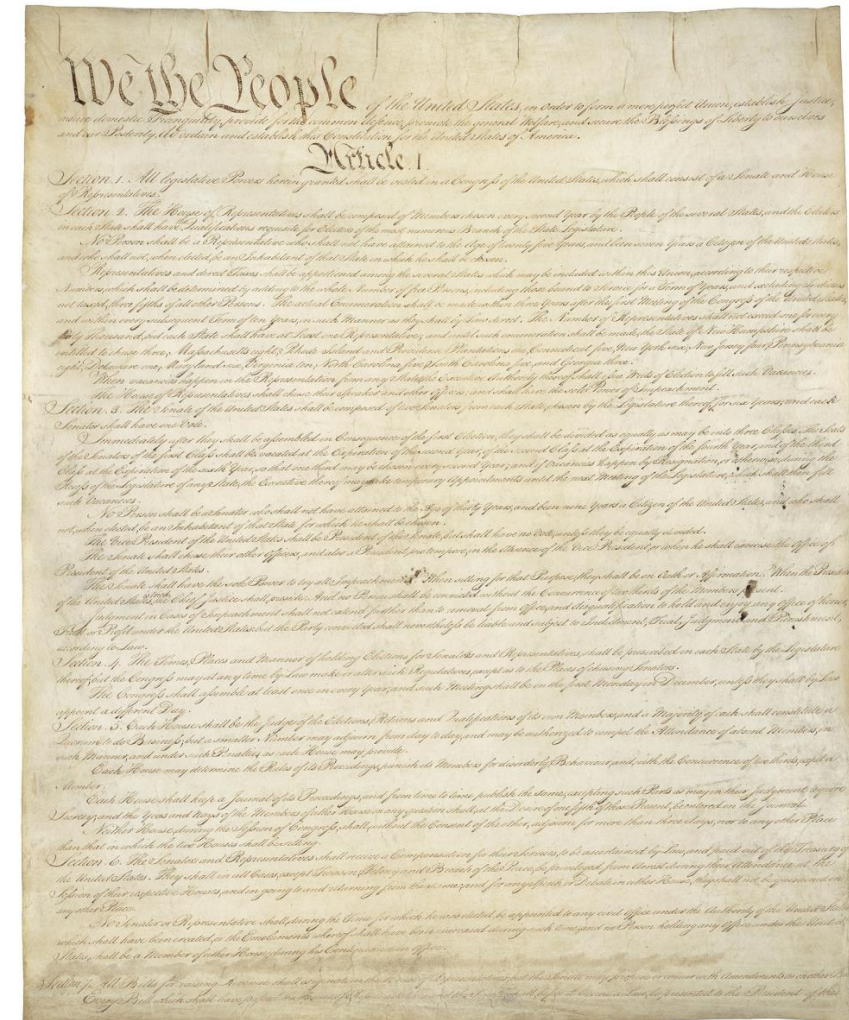 We the People of the United States, in Order to form a more perfect Union, establish Justice,
insure domestic Tranquility, provide for the common defence, promote the general Welfare, and secure the Blessings of Liberty to ourselves
and our Posterity, do ordain and establish this Constitution for the United States of America.
Article. I.
Section. 1. All legislative Powers herein granted shall be vested in a Congress of the United States, which shall consist of a Senate and House
of Representatives.
Section. 2. The House of Representatives shall be composed of Members chosen every second Year by the People of the several States, and the Electors
in each State shall have the Qualifications requisite for Electors of the most numerous Branch of the State Legislature.
No Person shall be a Representative who shall not have attained to the Age of twenty five Years, and been seven Years a Citizen of the United States,
and who shall not, when elected, be an Inhabitant of that State in which he shall be chosen.
Representatives and direct Taxes shall be apportioned among the several States which may be included within this Union, according to their respective
Numbers, which shall be determined by adding to the whole Number of free Persons, including those bound to Service for a Term of Years, and excluding Indians
not taxed, three fifths of all other Persons. The actual Enumeration shall be made within three Years after the first Meeting of the Congress of the United States,
and within every subsequent Term of ten Years, in such Manner as they shall by Law direct. The Number of Representatives shall not exceed one for every
thirty Thousand, but each State shall have at Least one Representative; and until such enumeration shall be made, the State of New Hampshire shall be
entitled to chuse three, Massachusetts eight, Rhode Island and Providence Plantations one, Connecticut five, New York six, New Jersey four, Pennsylvania
eight, Delaware one, Maryland six, Virginia ten, North Carolina five, South Carolina five, and Georgia three.
When vacancies happen in the Representation from any State, the Executive Authority thereof shall issue Writs of Election to fill such Vacancies.
The House of Representatives shall chuse their Speaker and other Officers; and shall have the sole Power of Impeachment.
Section. 3. The Senate of the United States shall be composed of two Senators from each State, chosen by the Legislature thereof, for six Years; and each
Senator shall have one Vote.
Immediately after they shall be assembled in Consequence of the first Election, they shall be divided as equally as may be into three Classes. The Seats
of the Senators of the first Class shall be vacated at the Expiration of the second Year, of the second Class at the Expiration of the fourth Year, and of the third
Class at the Expiration of the sixth Year, so that one third may be chosen every second Year; and if Vacancies happen by Resignation, or otherwise, during the
Recess of the Legislature of any State, the Executive thereof may make temporary Appointments until the next Meeting of the Legislature, which shall then fill
such Vacancies.
No Person shall be a Senator who shall not have attained to the Age of thirty Years, and been nine Years a Citizen of the United States, and who shall
not, when elected, be an Inhabitant of that State for which he shall be chosen.
The Vice President of the United States shall be President of the Senate, but shall have no Vote, unless they be equally divided.
The Senate shall chuse their other Officers, and also a President pro tempore, in the Absence of the Vice President, or when he shall exercise the Office of
President of the United States.
The Senate shall have the sole Power to try all Impeachments. When sitting for that Purpose, they shall be on Oath or Affirmation. When the President
of the United States is tried, the Chief Justice shall preside: And no Person shall be convicted without the Concurrence of two thirds of the Members present.
Judgment in Cases of Impeachment shall not extend further than to removal from Office, and disqualification to hold and enjoy any Office of honor,
Trust or Profit under the United States: but the Party convicted shall nevertheless be liable and subject to Indictment, Trial, Judgment and Punishment,
according to Law.
Section. 4. The Times, Places and Manner of holding Elections for Senators and Representatives, shall be prescribed in each State by the Legislature
thereof; but the Congress may at any time by Law make or alter such Regulations, except as to the Places of chusing Senators.
The Congress shall assemble at least once in every Year, and such Meeting shall be on the first Monday in December, unless they shall by Law
appoint a different Day.
Section. 5. Each House shall be the Judge of the Elections, Returns and Qualifications of its own Members, and a Majority of each shall constitute a
Quorum to do Business; but a smaller Number may adjourn from day to day, and may be authorized to compel the Attendance of absent Members, in
such Manner, and under such Penalties as each House may provide.
Each House may determine the Rules of its Proceedings, punish its Members for disorderly Behaviour, and, with the Concurrence of two thirds, expel a
Member.
Each House shall keep a Journal of its Proceedings, and from time to time publish the same, excepting such Parts as may in their Judgment require
Secrecy; and the Yeas and Nays of the Members of either House on any question shall, at the Desire of one fifth of those Present, be entered on the Journal.
Neither House, during the Session of Congress, shall, without the Consent of the other, adjourn for more than three days, nor to any other Place
than that in which the two Houses shall be sitting.
Section. 6. The Senators and Representatives shall receive a Compensation for their Services, to be ascertained by Law, and paid out of the Treasury of
the United States. They shall in all Cases, except Treason, Felony and Breach of the Peace, be privileged from Arrest during their Attendance at the
Session of their respective Houses, and in going to and returning from the same; and for any Speech or Debate in either House, they shall not be questioned in
any other Place.
No Senator or Representative shall, during the Time for which he was elected, be appointed to any civil Office under the Authority of the United States,
which shall have been created, or the Emoluments whereof shall have been encreased during such time; and no Person holding any Office under the United
States, shall be a Member of either House during his Continuance in Office.
Section. 7. All Bills for raising Revenue shall originate in the House of Representatives; but the Senate may propose or concur with Amendments as on other Bills.
Every Bill which shall have passed the House shall, before it become a Law, be presented to the President of the